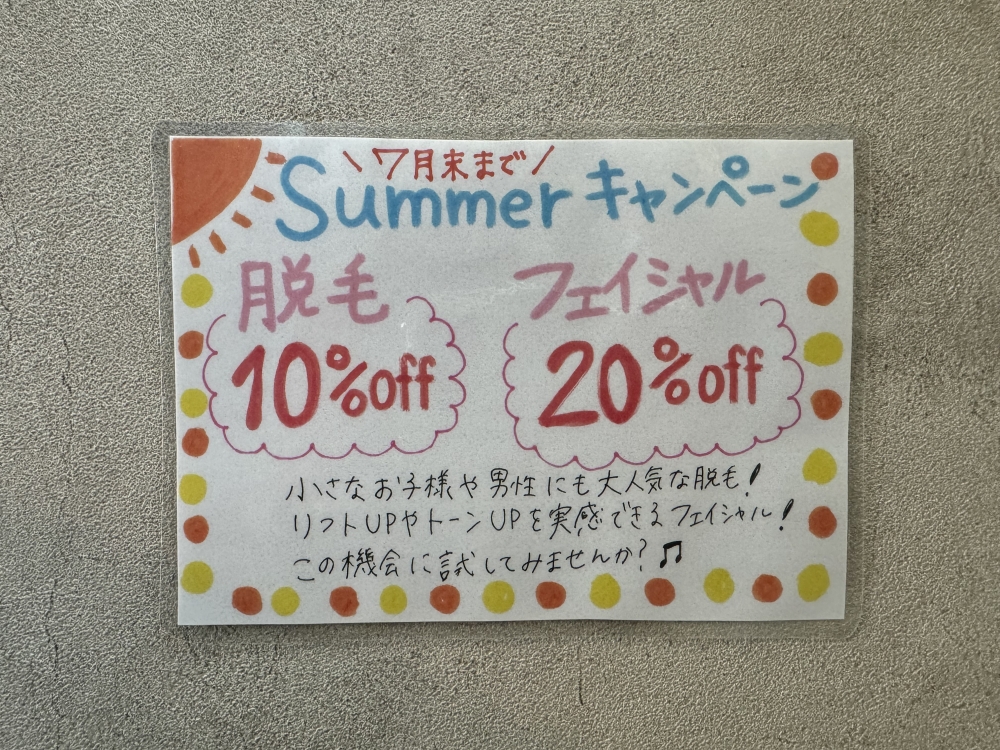 \ 7月末まで /
Summer キャンペーン
脱毛
10%off
フェイシャル
20%off
小さなお子様や男性にも大人気な脱毛!
リフトUPやトーンUPを実感できるフェイシャル!
この機会に試してみませんか?♫